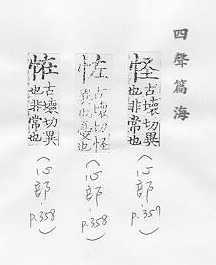 四聲篇海
怪
古壞切異
也非常也
(心部
恠
古壞切怪
(心部
p.358)
恠
古壞切異
也非常也
(心部
p.358)